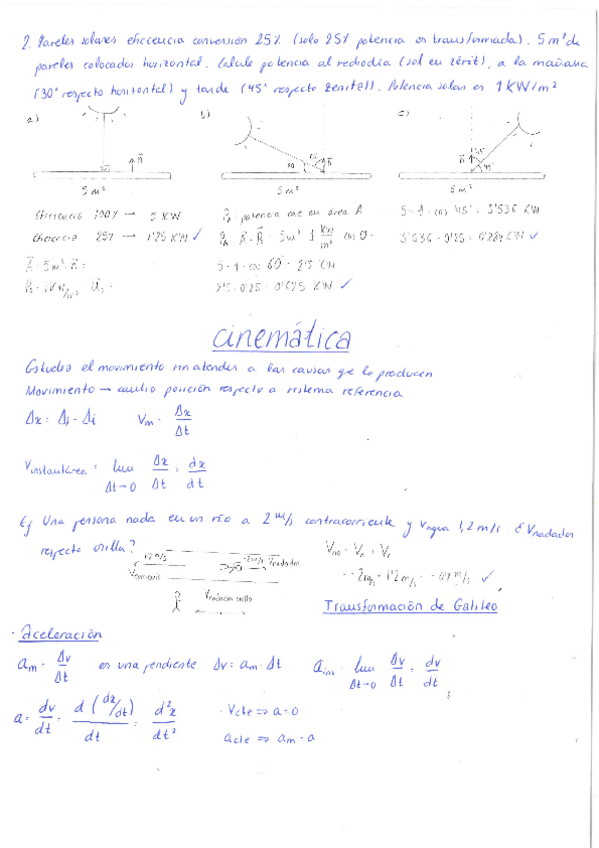 2. Paneles solares eficiencia conversión 25% (solo 25% potencia es transformada). 5 m² de
paneles colocados horizontal. Calcule potencia al mediodía (sol en zénit), a la mañana
(30° respecto horizontal) y tarde (45° respecto zenit). Potencia solar es 1 KW/m²
a) b) c)
5 m² 5 m² 5 m²
Eficiencia 100% → 5 KW
Eficiencia 25% → 1'25 KW ✓
potencia cae en área A
5 · 1 · cos 60 = 2'5 KW
2'5 · 0'25 = 0'625 KW ✓
5 · 1 · cos 45° = 3'536 KW
3'536 · 0'25 = 0'884 KW ✓
cinemática
Estudia el movimiento sin atender a las causas que lo producen
Movimiento → cambio posición respecto a sistema referencia
Vm = Δx/Δt
Vinstantánea = lim Δt→0 Δx/Δt = dx/dt
Ej Una persona nada en un río a 2 m/s contracorriente y Vagua 1,2 m/s. ¿Vnadador
respecto orilla?
Vnadador
Vnadador orilla
Transformación de Galileo
· Aceleración
am = Δv/Δt es una pendiente Δv = am · Δt ains = lim Δt→0 Δv/Δt = dv/dt
a = dv/dt = d(dx/dt)/dt = d²x/dt²
· Vcte ⇒ a=0
acte ⇒ am = a